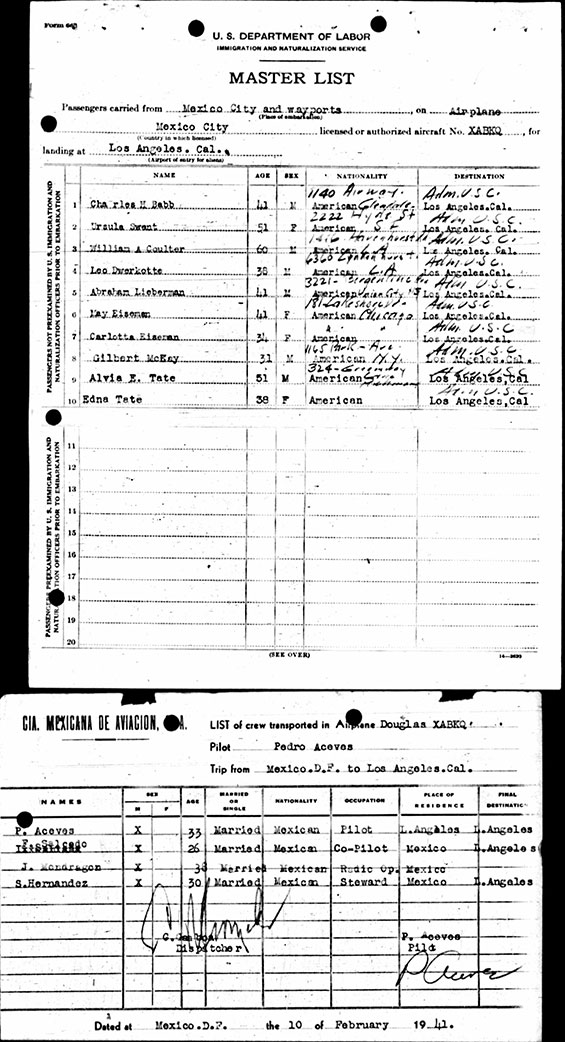 Form 6
U. S. DEPARTMENT OF LABOR
IMMIGRATION AND NATURALIZATION SERVICE
MASTER LIST
Passengers carried from Mexico City and wayports, on Airplane
(Place of embarkation)
Mexico City licensed or authorized aircraft No. XABKQ, for
(Country in which licensed)
landing at Los Angeles. Cal.
(Airport of entry for aliens)
PASSENGERS NOT PREEXAMINED BY U. S. IMMIGRATION AND NATURALIZATION OFFICERS PRIOR TO EMBARKATION
NAME AGE SEX NATIONALITY DESTINATION
1140 Airway. Adm. U.S.C.
1 Charles H Babb 41 M American Glendale. Los Angeles.Cal.
2222 Hyde St Adm U.S.C.
2 Ursula Swant 51 F American, S F Los Angeles.Cal.
Adm. U.S.C.
3 William A Coulter 60 M American L.A Los Angeles. Cal.
Adm. U.S.C.
4 Leo Dwerkotte 38 M American L.A Los Angeles.Cal.
3221- Adm. U.S.C.
5 Abraham Lieberman 41 M American Union City Los Angeles.Cal.
Adm. U.S.C.
6 May Eiseman 41 F American Chicago Los Angeles.Cal.
" " Adm. U.S.C
7 Carlotta Eiseman 34 F American Los Angeles.Cal.
1165 Park - Ave Adm. U.S.C.
8 Gilbert McKay 31 M American N.Y. Los Angeles.Cal.
324 Adm. U.S.C.
9 Alvia E. Tate 51 M American Los Angeles.Cal
Adm U.S.C.
10 Edna Tate 38 F American Los Angeles.Cal
PASSENGERS PREEXAMINED BY U. S. IMMIGRATION AND NATURALIZATION OFFICERS PRIOR TO EMBARKATION
11
12
13
14
15
16
17
18
19
20
(SEE OVER)
CIA. MEXICANA DE AVIACION, A. LIST of crew transported in Airplane Douglas XABKQ
Pilot Pedro Aceves
Trip from Mexico.D.F. to Los Angeles.Cal.
NAMES SEX M F AGE MARRIED OR SINGLE NATIONALITY OCCUPATION PLACE OF RESIDENCE FINAL DESTINATION
P. Aceves X 33 Married Mexican Pilot L.Angeles L.Angeles
F. Salcedo X 26 Married Mexican Co-Pilot Mexico L.Angeles
J. Mondragon X 38 Married Mexican Radio Op. Mexico
S.Hernandez X 30 Married Mexican Steward Mexico L.Angeles
G. P. Aceves
Dispatcher Pilot
P. Aceves
Dated at Mexico.D.F. the 10 of February 1941.